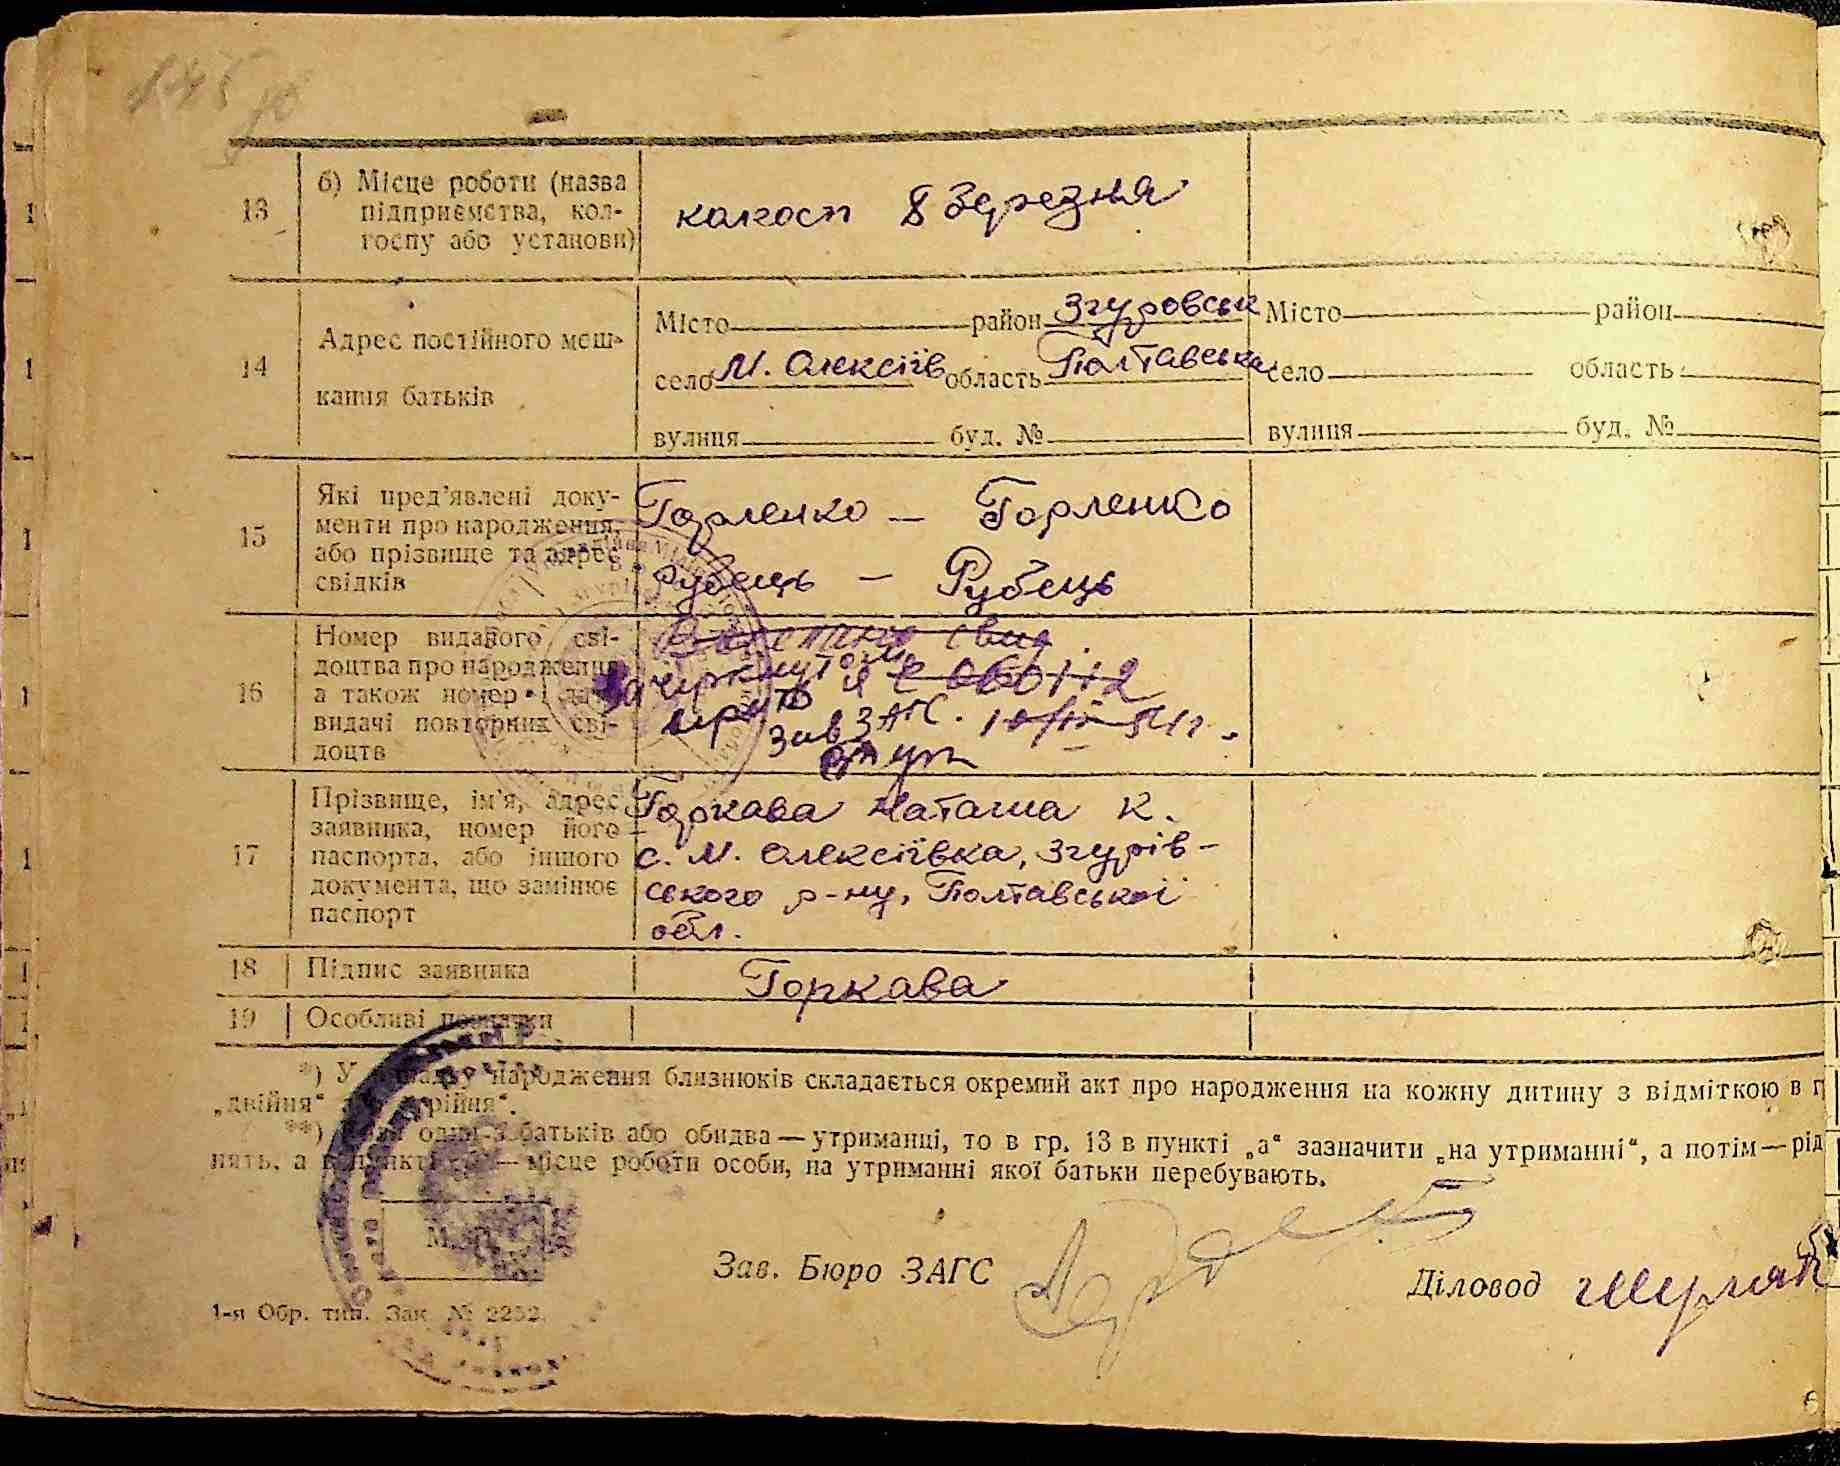 13
б) Місце роботи (назва
підприємства, кол-
госпу або установи)
колгосп 8 Березня
14
Адрес постійного меш-
кання батьків
Місто район Згуровськ
село М. Олексіїв область Полтавська
вулиця буд. №
Місто район
село область
вулиця буд. №
15
Які пред'явлені доку-
менти про народження,
або прізвище та адрес
свідків
Горленко — Горленко
Рубець — Рубець
16
Номер виданого сві-
доцтва про народження
а також номер і дата
видачі повторних сві-
доцтв
зав ЗАГС.
17
Прізвище, ім'я, адрес
заявника, номер його
паспорта, або іншого
документа, що замінює
паспорт
Горкава Наташа К.
с. М. Олексіївка, Згурів-
ського р-ну, Полтавської
обл.
18
Підпис заявника
Горкава
19
Особливі познатки
*) У випадку народження близнюків складається окремий акт про народження на кожну дитину з відміткою в г
„двійня“ або „трійня“.
**) Коли один з батьків або обидва — утриманці, то в гр. 13 в пункті „а“ зазначити „на утриманні“, а потім — рід
нять, а в пункті — місце роботи особи, на утриманні якої батьки перебувають.
М.
Зав. Бюро ЗАГС
Діловод
1-я Обр. тип. Зак. № 2252.